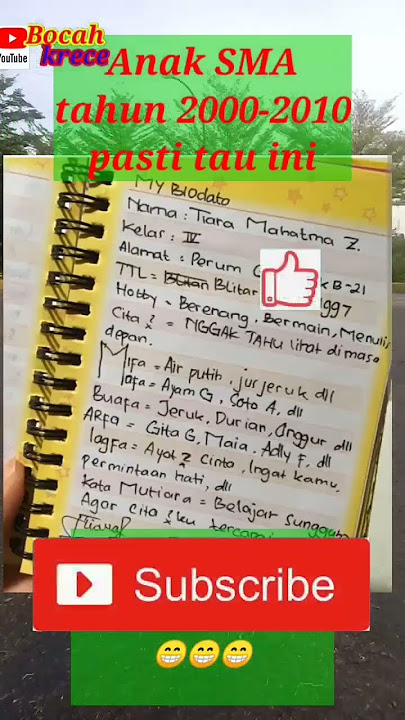 Bocah
krece
YouTube
Anak SMA
tahun 2000-2010
pasti tau ini
MY BIODATA
Nama : Tiara Mahatma Z.
Kelas : IV
Alamat : Perum B-21
TTL = Blitar 1997
Hobby = Berenang, Bermain, Menulis
Cita 2 = NGGAK TAHU lihat di masa
depan.
Mifa = Air putih, jus jeruk dll
Mafa = Ayam G, Soto A, dll
Buafa = Jeruk, Durian, Anggur dll
ARFa = Gita G, Maia, Adly F, dll
lagfa = Ayat 2 Cinta, Ingat kamu,
permintaan hati, dll
Kata Mutiara = Belajar sungguh
Agar cita 2 ku tercapai
Subscribe